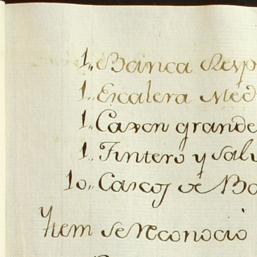 1,, Banca Resp
1,, Escalera Med
1,, Caxon grande
1,, Tintero y Salv
10,, Cascos de Ba
Ytem se Reconocio